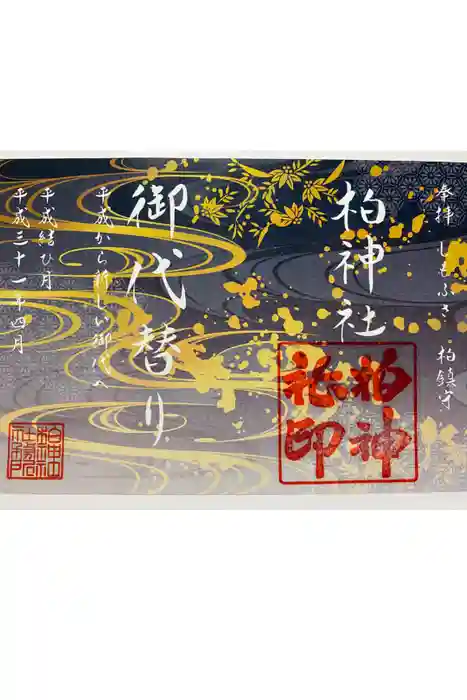 奉拝 しもふさ 柏鎮守
柏神社
柏神社印
御代替り
平成から新しい御代へ
平成結び月
平成三十一年四月